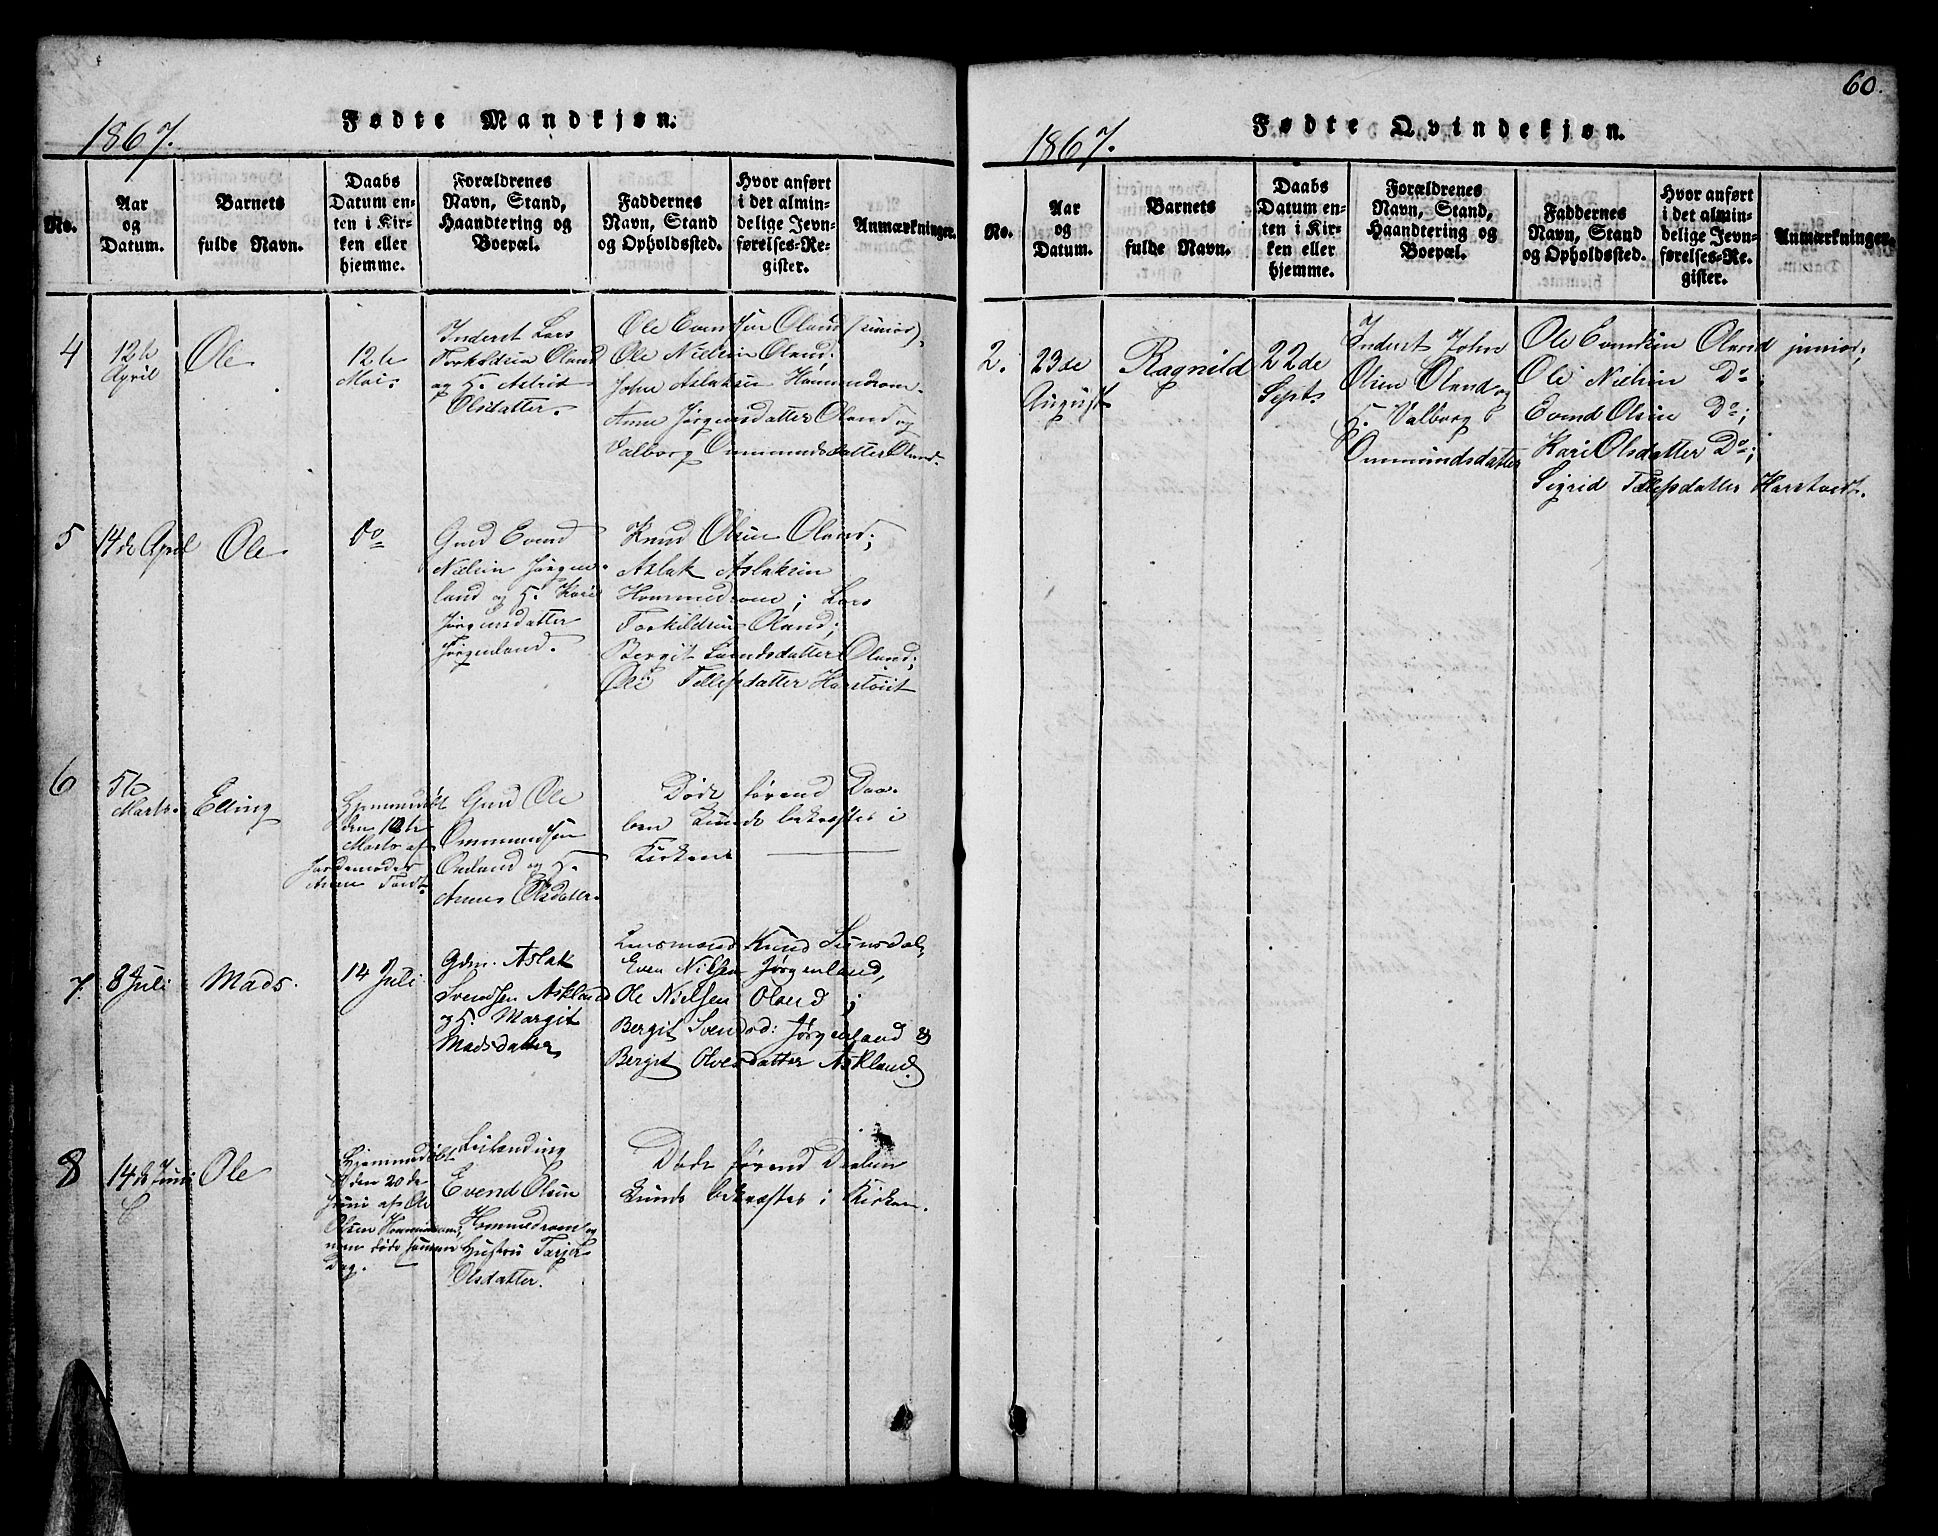 1867.
Fødte Mandkjøn.
No.
Aar
og
Datum.
Barnets
fulde Navn.
Daabs
Datum en-
ten i Kir-
ken eller
hjemme.
Forældrenes
Navn, Stand,
Haandtering og
Boepæl.
Faddernes
Navn, Stand
og Opholdssted.
Hvor anført
i det almin-
delige Jevn-
førelses-Re-
gister.
Anmærkninger.
4
12te
April
Ole
12te
Mai
Inderst Lars
Torkildsen Oland
og H. Astrid
Olsdatter.
Ole Evendsen Oland (junior),
Ole Nielsen Oland.
John Aslaksen Hommedrom.
Anne Jørgensdatter Oland og
Valborg Ommundsdatter Oland.
5
14de April
Ole
Do
Gmd Evend
Nielsen Jørgen-
land og H. Kari
Jørgensdatter
Jørgenland.
Knud Olsen Oland;
Aslak Aslaksen
Hommedrom; Lars
Torkildsen Oland;
Bergit Svendsdatter Oland;
Tellefsdatter Harstveit
6
5te
Marts.
Elling
Hjemmedøbt
den 10te
Marts af
Jordemoder
Anne
Gmd Ole
Ommundsen
og H.
Anne Olsdatter.
Døde førend Daa-
ben kunde bekræftes i
Kirken
7.
8 Juli
Mads.
14 Juli
Gdm. Aslak
Svendsen Askland
og H. Margit
Madsdatter
Lensmand Knud Suunsdal,
Even Nilsen Jørgenland,
Ole Nielsen Oland;
Bergit Svendsd: Jørgenland &
Bergit Olvesdatter Askland.
8
14de Juni
Ole
Hjemmedøbt
den 20de
Juni af Ole
Olsen Hommedrom,
men døde samme
Dag.
Leilænding
Evend Olsen
Hommedrom og
Hustru Tarjer
Olsdatter.
Døde førend Daaben
kunde bekræftes i Kirken.
60.
1867.
Fødte Qvindekjøn.
No.
Aar
og
Datum.
Barnets
fulde Navn.
Daabs
Datum en-
ten i Kir-
ken eller
hjemme.
Forældrenes
Navn, Stand,
Haandtering og
Boepæl.
Faddernes
Navn, Stand
og Opholdssted.
Hvor anført
i det almin-
delige Jevn-
førelses-Re-
gister.
Anmærkninger.
2.
23de
August
Ragnild
22de
Sept.
Inderst John
Olsen Oland og
H. Valborg
Ommundsdatter
Ole Evendsen Oland junior;
Ole Nielsen Do;
Evend Olsen Do;
Kari Olsdatter Do;
Sigrid Tellefsdatter Harstvedt.